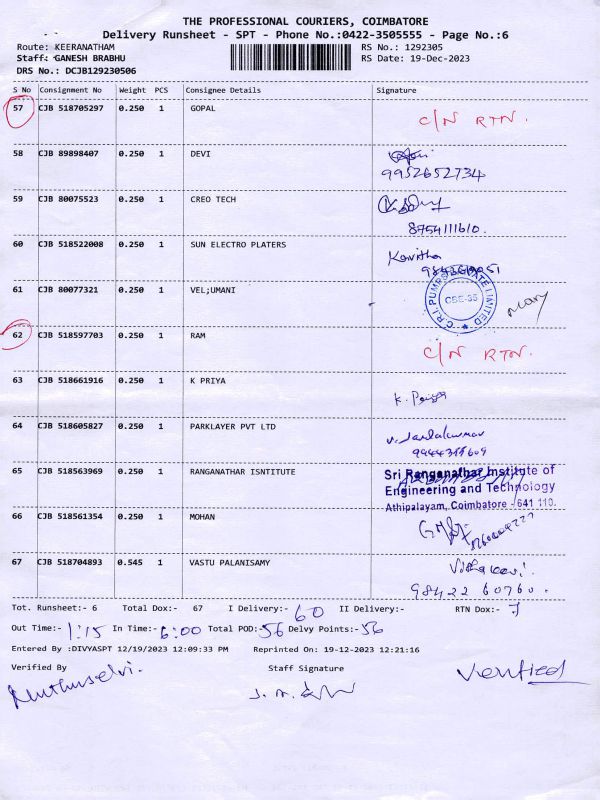 THE PROFESSIONAL COURIERS, COIMBATORE
Delivery Runsheet - SPT - Phone No.:0422-3505555 - Page No.:6
Route: KEERANATHAM RS No.: 1292305
Staff: GANESH BRABHU RS Date: 19-Dec-2023
DRS No.: DCJB129230506
S No Consignment No Weight PCS Consignee Details Signature
57 CJB 518705297 0.250 1 GOPAL
C/N RTN.
58 CJB 89898407 0.250 1 DEVI
9952652734
59 CJB 80075523 0.250 1 CREO TECH
8754111610.
60 CJB 518522008 0.250 1 SUN ELECTRO PLATERS Kavitha
61 CJB 80077321 0.250 1 VEL;UMANI
C.R.I. PUMPS PRIVATE LIMITED
CBE-35
Mary
62 CJB 518597703 0.250 1 RAM
C/N RTN.
63 CJB 518661916 0.250 1 K PRIYA
K. Priya
64 CJB 518605827 0.250 1 PARKLAYER PVT LTD
65 CJB 518563969 0.250 1 RANGANATHAR ISNTITUTE
Sri Ranganathar Institute of
Engineering and Technology
Athipalayam, Coimbatore - 641 110.
66 CJB 518561354 0.250 1 MOHAN
67 CJB 518704893 0.545 1 VASTU PALANISAMY
98422 60760.
Tot. Runsheet:- 6 Total Dox:- 67 I Delivery:- 60 II Delivery:- RTN Dox:- 7
Out Time:- 1:15 In Time:- 6:00 Total POD:- 56 Delvy Points:- 56
Entered By :DIVYASPT 12/19/2023 12:09:33 PM Reprinted On: 19-12-2023 12:21:16
Verified By Staff Signature Verified
Muthuselvi.